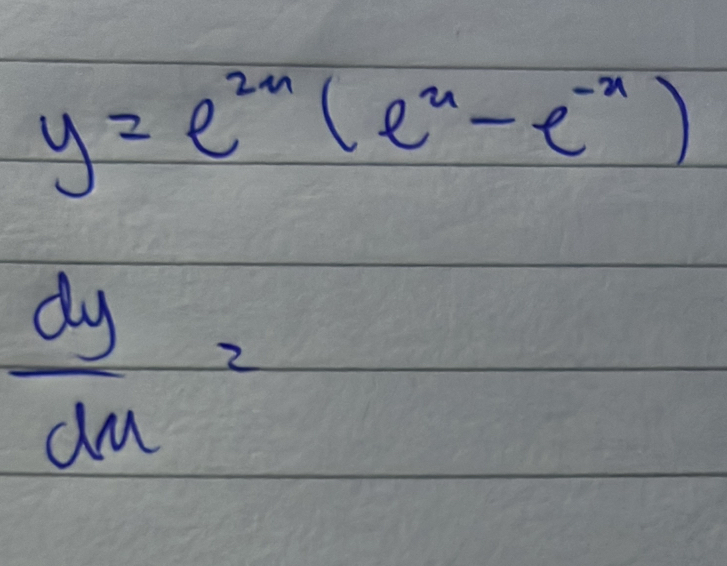 y = e^{2x} (e^x - e^{-x})
dy/dx =